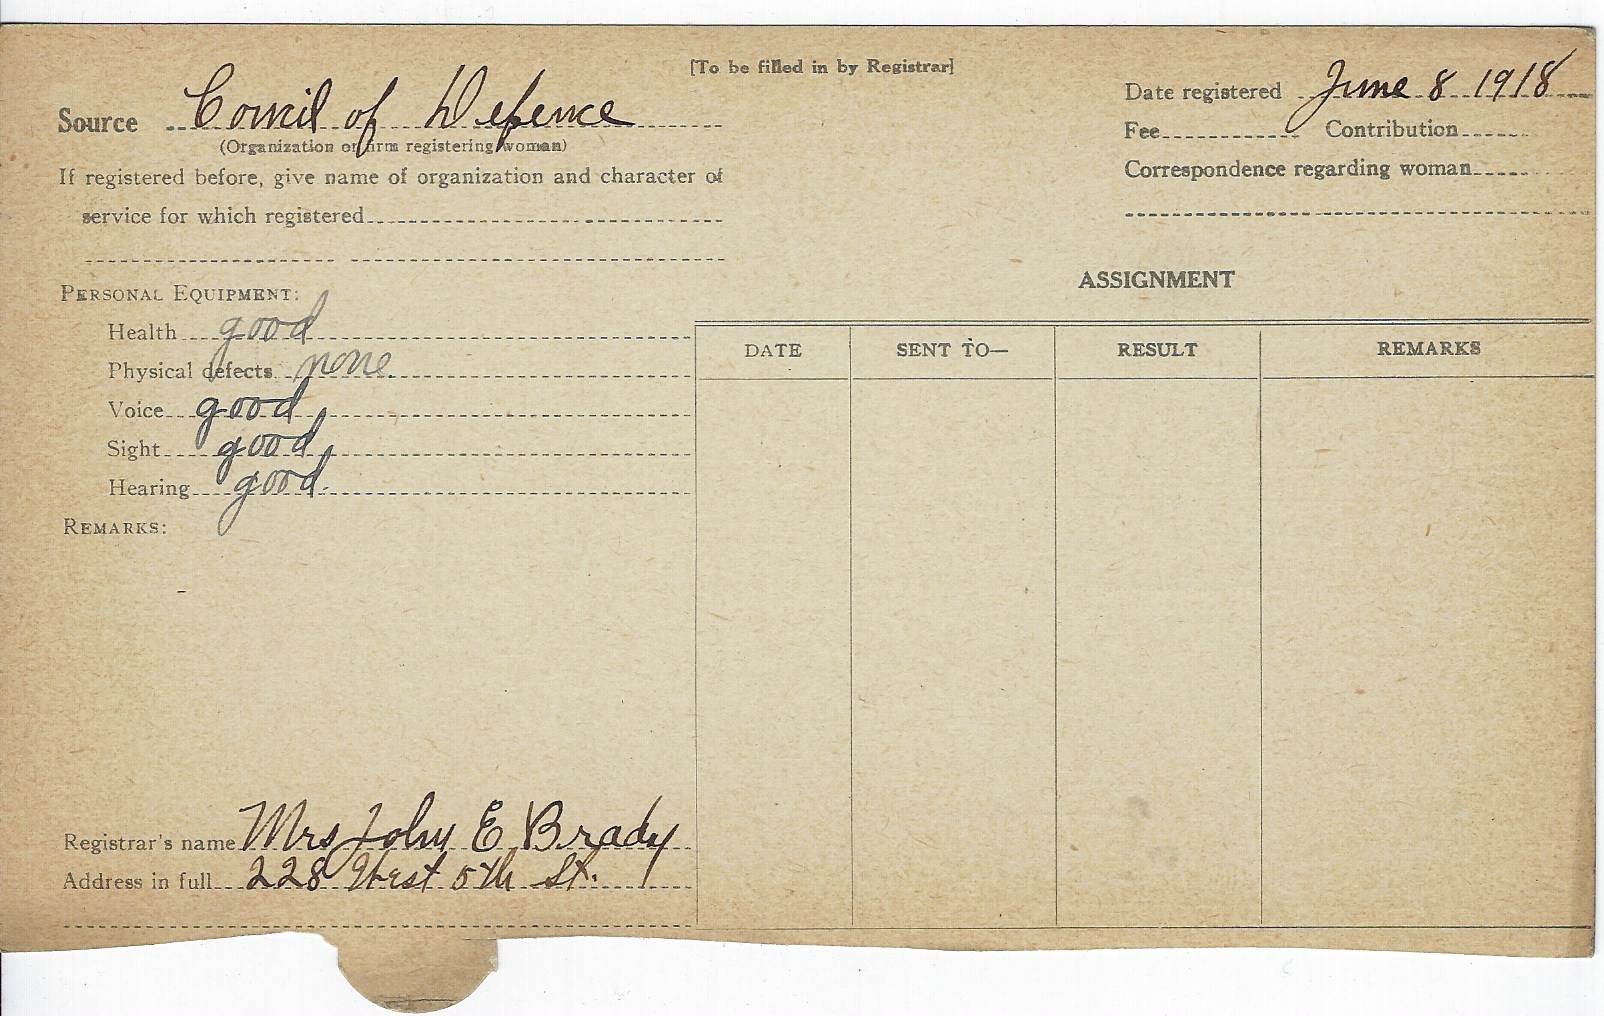 [To be filled in by Registrar]
Source Council of Defence
(Organization or firm registering woman)
If registered before, give name of organization and character of
service for which registered
Date registered June 8 1918
Fee Contribution
Correspondence regarding woman
PERSONAL EQUIPMENT:
Health good
Physical defects none
Voice good
Sight good
Hearing good
REMARKS:
ASSIGNMENT
DATE SENT TO— RESULT REMARKS
Registrar's name Mrs John E Brady
Address in full 228 West 5th St.